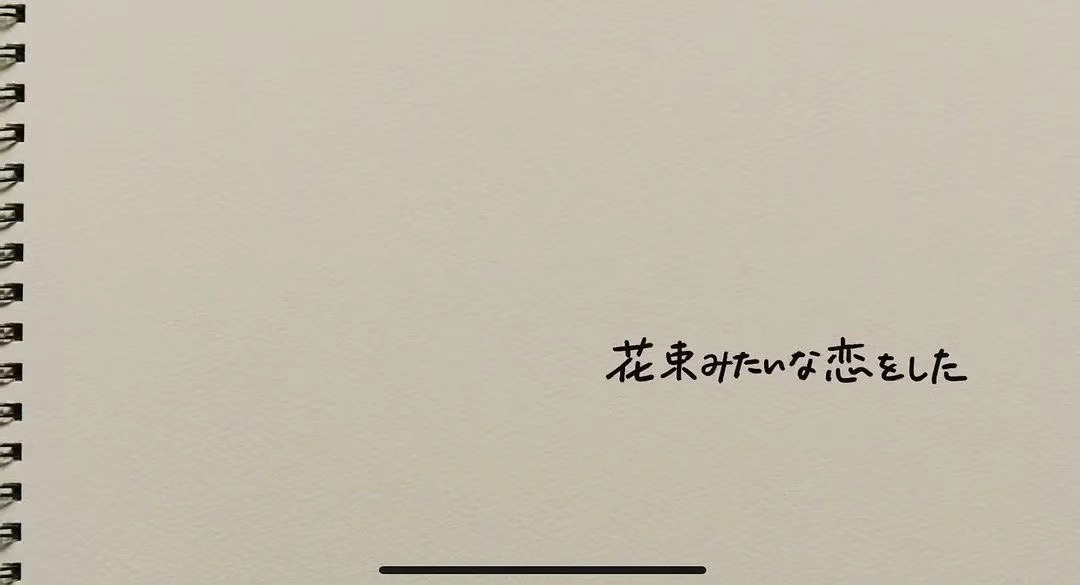 花束みたいな恋をした